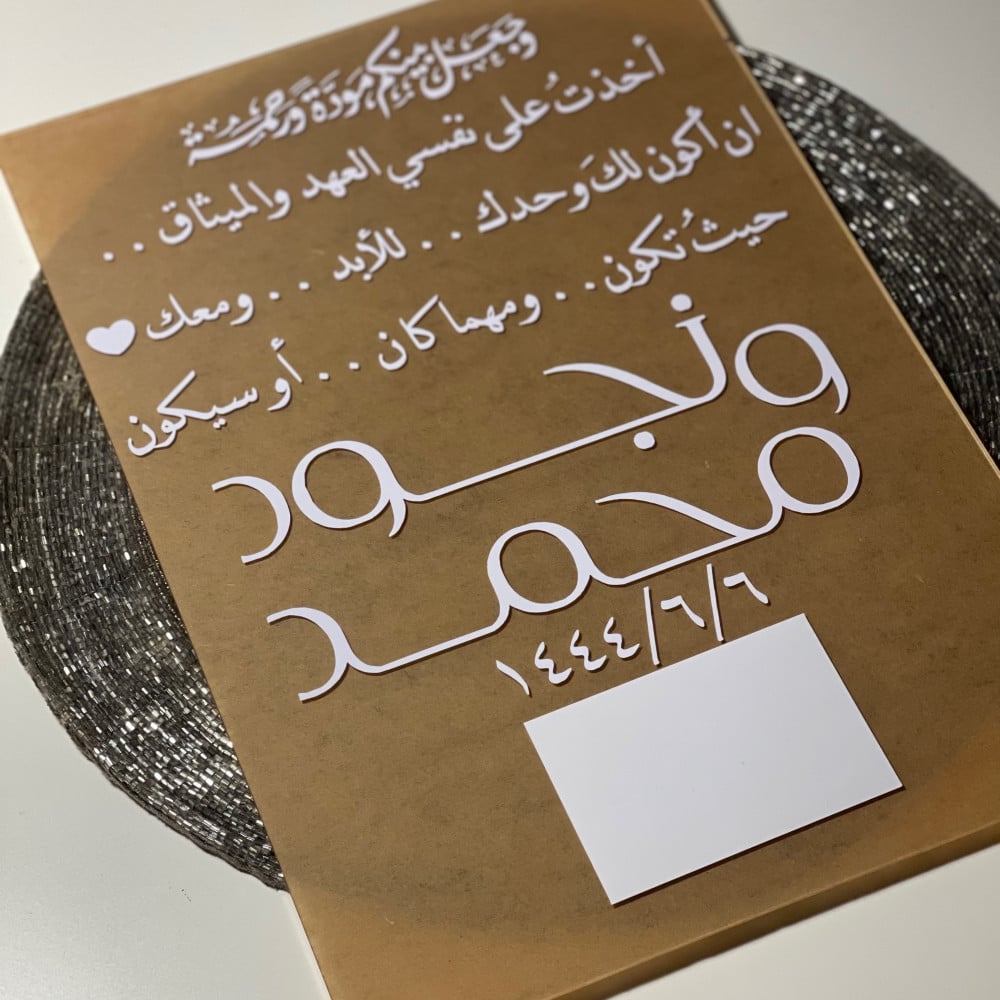 وجعل بينكم مودة ورحمة
أخذتُ على نفسي العهد والميثاق . .
ان أكون لكَ وحدك . . للأبد . . ومعك ♥
حيثُ تكون . . ومهما كان . . أو سيكون
ونجود
محمد
١٤٤٤/٦/٦